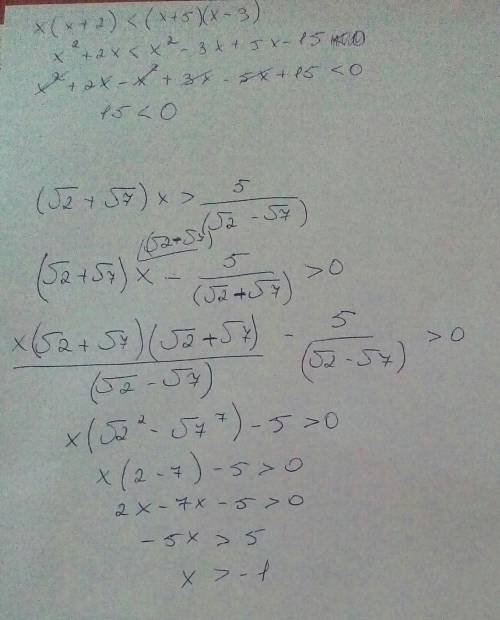 x(x+2)<(x+5)(x-3)
x²+2x<x²-3x+5x-15
x²+2x-x²+3x-5x+15<0
15<0
(√2+√7)x>5/(√2-√7)
(√2-√7)
(√2+√7)x-5/(√2-√7)>0
x(√2+√7)(√2+√7)/(√2-√7)-5/(√2-√7)>0
x(√2²-√7⁷)-5>0
x(2-7)-5>0
2x-7x-5>0
-5x>5
x>-1